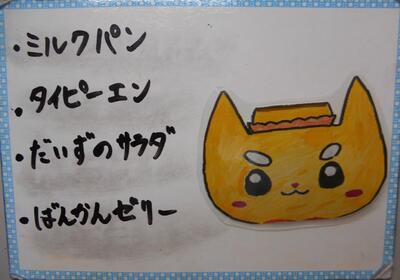 ・ミルクパン
・タイピーエン
・だいずのサラダ
・ばんかんゼリー